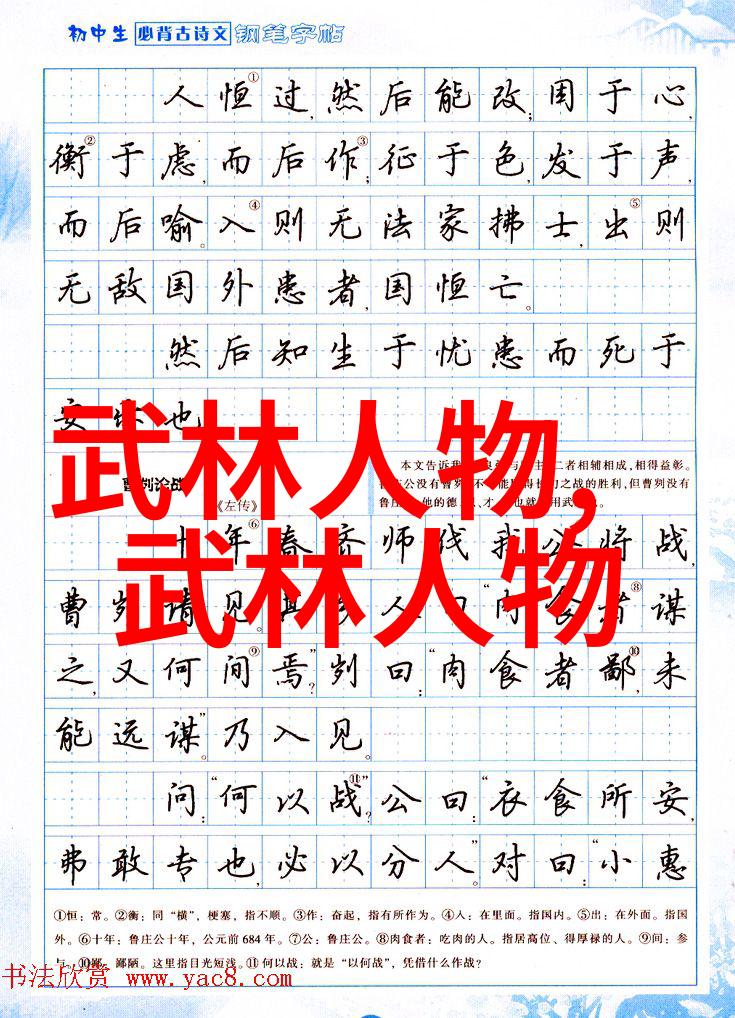 初中生 必背古诗文 钢笔字帖
人恒①过,然后能改;困于心,
衡②于虑,而后作③;征于色,发于声,
而后喻。入④则无法家拂士,出⑤则
无敌国外患者,国恒亡。
然后知生于忧患而死于
安乐也
武林人物,
武林人物
曹刿论战
《左传》
本文告诉我 与 主 二者相辅相成,相得益彰。
庄公没有曹刿 不 能 得长勺之战的胜利,但曹刿没有
鲁庄 他的德 、才 也就 用武
十年⑥春齐师伐我公将战,
曹刿请见。其乡人曰“肉食者⑧谋
之,又何间⑨焉?”刿曰:“肉食者鄙⑩,未
能远谋。”乃入见。
问:“何以战⑪?”公曰:“衣食所安,
弗敢专也,必以分人。”对曰:“小惠
①恒:常。②衡:同“横”,梗塞,指不顺。③作:奋起,指有所作为。④入:在里面。指国内。⑤出:在外面。指国
外。⑥十年:鲁庄公十年,公元前684年。⑦公:鲁庄公。⑧肉食者:吃肉的人。指居高位、得厚禄的人。⑨间:参
与。⑩鄙:鄙陋。这里指目光短浅。⑪何以战:就是“以何战”,凭借什么作战?
书法欣赏 www.yac8.com